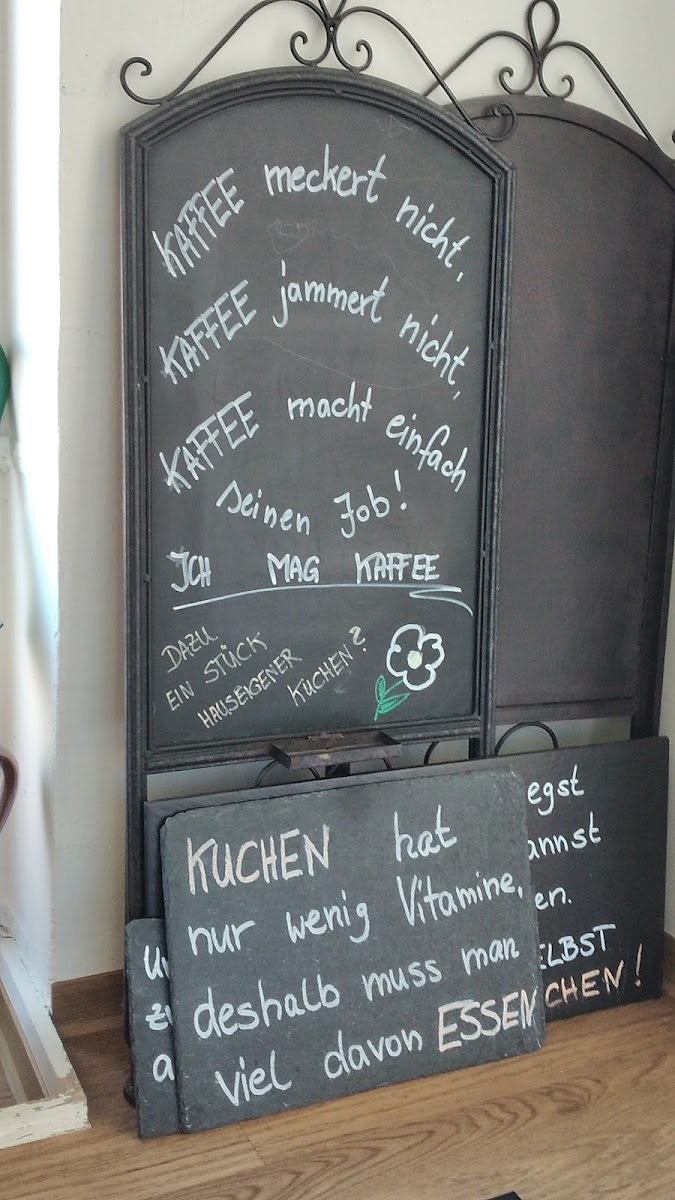 KAFFEE meckert nicht,
KAFFEE jammert nicht,
KAFFEE macht einfach
seinen Job!
ICH MAG KAFFEE
DAZU
EIN STÜCK
HAUSEIGENER
KUCHEN?
KUCHEN hat
nur wenig Vitamine,
deshalb muss man
viel davon ESSEN
egst
annst
en.
ELBST
CHEN!